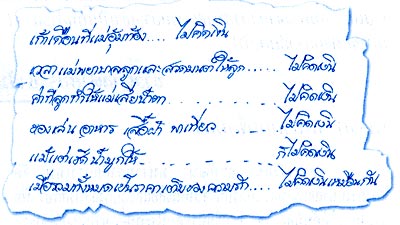 เก้าเดือนที่แม่อุ้มท้อง.... ไม่คิดเงิน
เวลาแม่พยาบาลลูกและสวดมนต์ให้ลูก..... ไม่คิดเงิน
ค่าที่ลูกทำให้แม่เสียน้ำตา.......... ไม่คิดเงิน
ของเล่น อาหาร เสื้อผ้า พาเที่ยว....... ไม่คิดเงิน
แม้แต่เช็ดน้ำมูกให้- - - - - - - ก็ไม่คิดเงิน
เมื่อรวมทั้งหมดเป็นราคาเต็มของความรัก.... ไม่คิดเงินเหมือนกัน